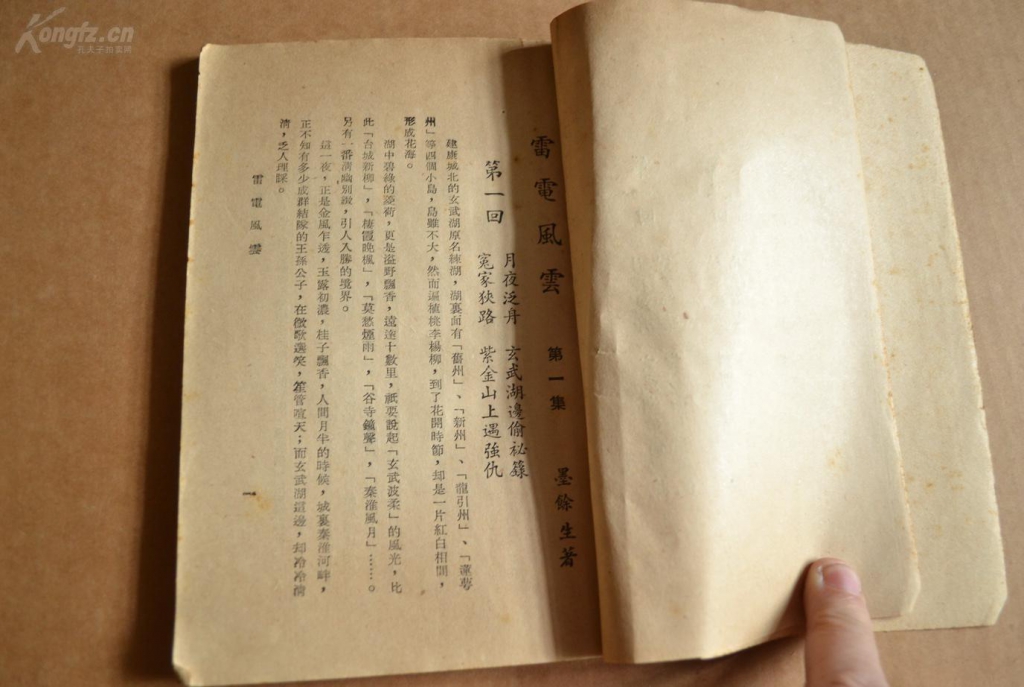 Kongfz.cn
孔夫子旧书网
雷電風雲 第一集 墨餘生著
第一回 月夜泛舟 玄武湖邊偷祕籙
冤家狹路 紫金山上遇強仇
建康城北的玄武湖原名練湖，湖裏面有「舊州」、「新州」、「龍引州」、「蓮萼
州」等四個小島，島雖不大，然而遍植桃李楊柳，到了花開時節，却是一片紅白相間，
形成花海。
湖中碧綠的菱荷，更是溢野飄香，遠達十數里，祇要說起「玄武波柔」的風光，比
此「台城新柳」，「棲霞晚楓」，「莫愁煙雨」，「谷寺鐘聲」，「秦淮風月」……。
另有一番清幽別緻，引人入勝的境界。
這一夜，正是金風乍透，玉露初濃，桂子飄香，人間月半的時候，城裏秦淮河畔，
正不知有多少成群結隊的王孫公子，在徵歌選笑，笙管喧天；而玄武湖這邊，却冷冷清
清，乏人理睬。
雷電風雲
一